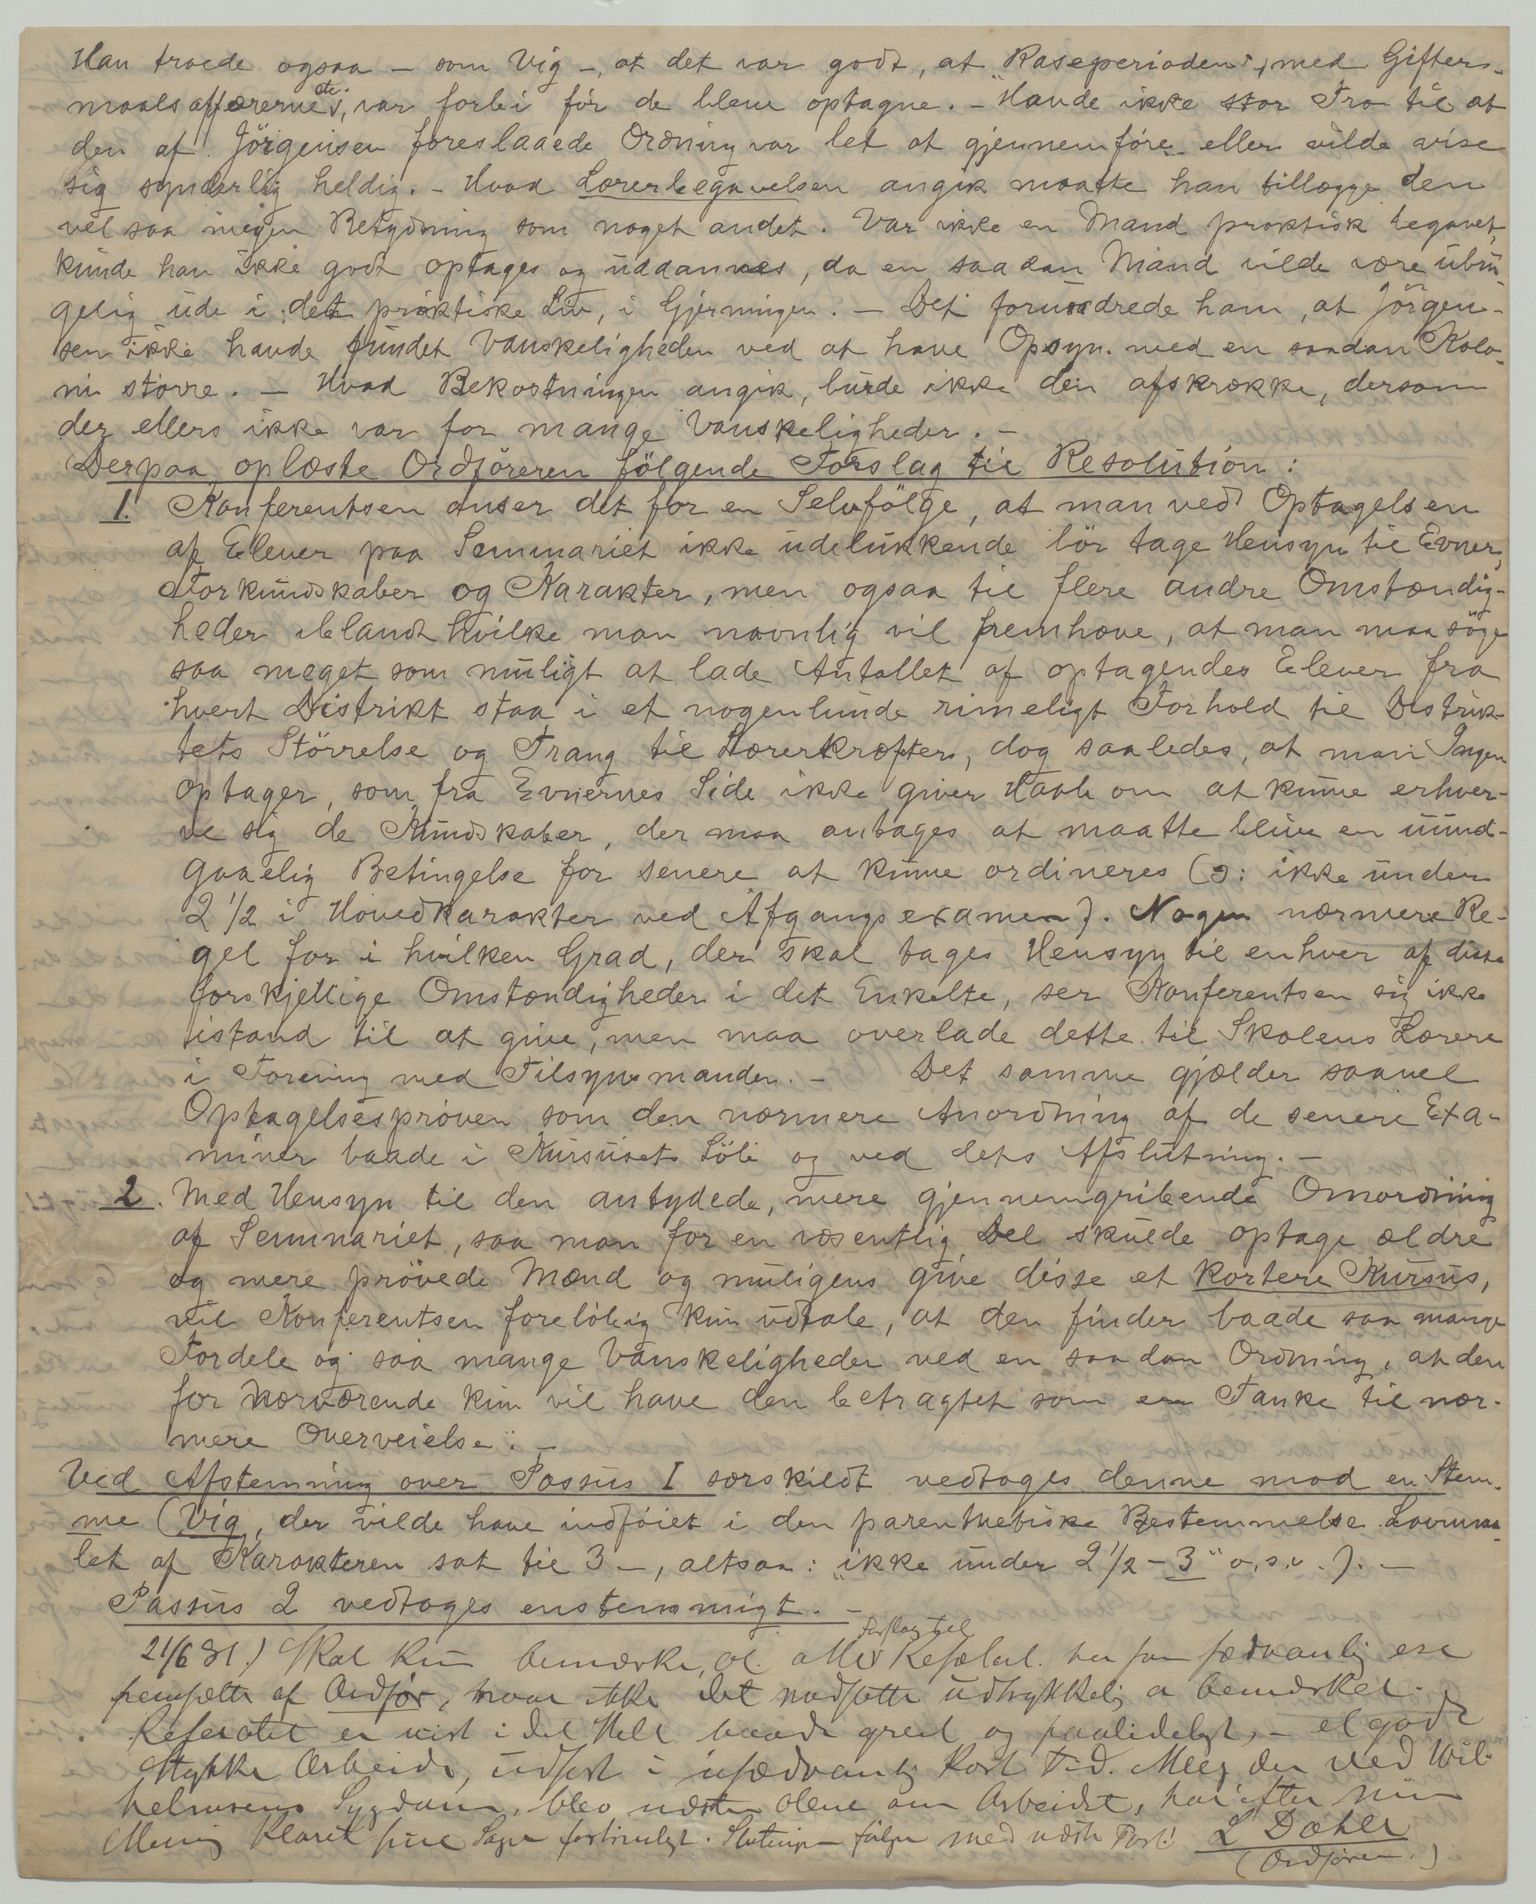 Han troede ogsaa – som Vig –, at det var godt, at "Raseperioden", med Gifter-
maalsaffærerne etc. var forbi før de bleve optagne. – Havde ikke stor Tro til at
den af Jörgensen foreslaaede Ordning var let at gjennemføre eller vilde vise
sig synderlig heldig. – Hvad Lærerbegavelsen angik maatte han tillægge den
vel saa megen Betydning som noget andet. Var ikke en Mand praktisk begavet,
kunde han ikke godt optages og uddannes, da en saadan Mand vilde være ubru-
gelig ude i det praktiske Liv, i Gjerningen. – Det forundrede ham, at Jörgen-
sen ikke havde fundet Vanskeligheden ved at have Opsyn med en saadan Kolo-
ni større. – Hvad Bekostningen angik, burde ikke den afskrække, dersom
der ellers ikke var for mange Vanskeligheder. –
Derpaa oplæste Ordföreren fölgende Forslag til Resolution:
1. Konferentsen anser det for en Selvfölge, at man ved Optagelsen
af Elever paa Seminariet ikke udelukkende bör tage Hensyn til Evner,
Forkundskaber og Karakter, men ogsaa til flere andre Omstændig-
heder iblandt hvilke man navnlig vil fremhæve, at man maa söge
saa meget som muligt at lade Antallet af optagendes Elever fra
hvert Distrikt staa i et nogenlunde rimeligt Forhold til Distrik-
tets Störrelse og Trang til Lærerkræfter, dog saaledes, at man Ingen
optager, som fra Evnernes Side ikke giver Haab om at kunne erhver-
ve sig de Kundskaber, der maa antages at maatte blive en uund-
gaaelig Betingelse for senere at kunne ordineres (ɔ: ikke under
2 1/2 i Hovedkarakter ved Afgangsexamen). Nogen nærmere Re-
gel for i hvilken Grad, der skal tages Hensyn til enhver af disse
forskjellige Omstændigheder i det Enkelte, ser Konferentsen sig ikke
istand til at give, men maa overlade dette til Skolens Lærere
i Forening med Tilsynsmanden. – Det samme gjælder saavel
Optagelsesprøven som den nærmere Anordning af de senere Exa-
miner baade i Kursusets Löb og ved dets Afslutning. –
2. Med Hensyn til den antydede, mere gjennemgribende Omordning
af Seminariet, saa man for en væsentlig Del skulde optage ældre
og mere prövede Mænd og muligens give disse et kortere Kursus,
vil Konferentsen foreløbig kun udtale, at den finder baade saa mange
Fordele og saa mange Vanskeligheder ved en saadan Ordning, at den
for Nærværende kun vil have den betragtet som en Tanke til nær-
mere Overveielse". –
Ved Afstemning over Passus I særskildt vedtages denne mod en Stem-
me (Vig, der vilde have indföiet i den parenthetiske Bestemmelse Lavmaa-
let af Karakteren sat til 3 –, altsaa: "ikke under 2 1/2 – 3" o.s.v.). –
Passus 2 vedtages enstemmigt. –
21/6 81.) Skal kun bemærke, at alle Forslag til Resolut. her som sædvanlig ere
fremsatte af Ordför, hvor ikke det modsatte udtrykkelig er bemærket.
Referatet er vist i det Hele baade greit og paalideligt, – et godt
Stykke Arbeide, udført i usædvanlig kort Tid. Meeg der ved Wil-
helmsens Sygdom, blev næsten alene om Arbeidet, har efter min
Mening klaret sine Sager fortrinligt. Slutningen følger med næste Post! L Dahle
(Ordföreren.)